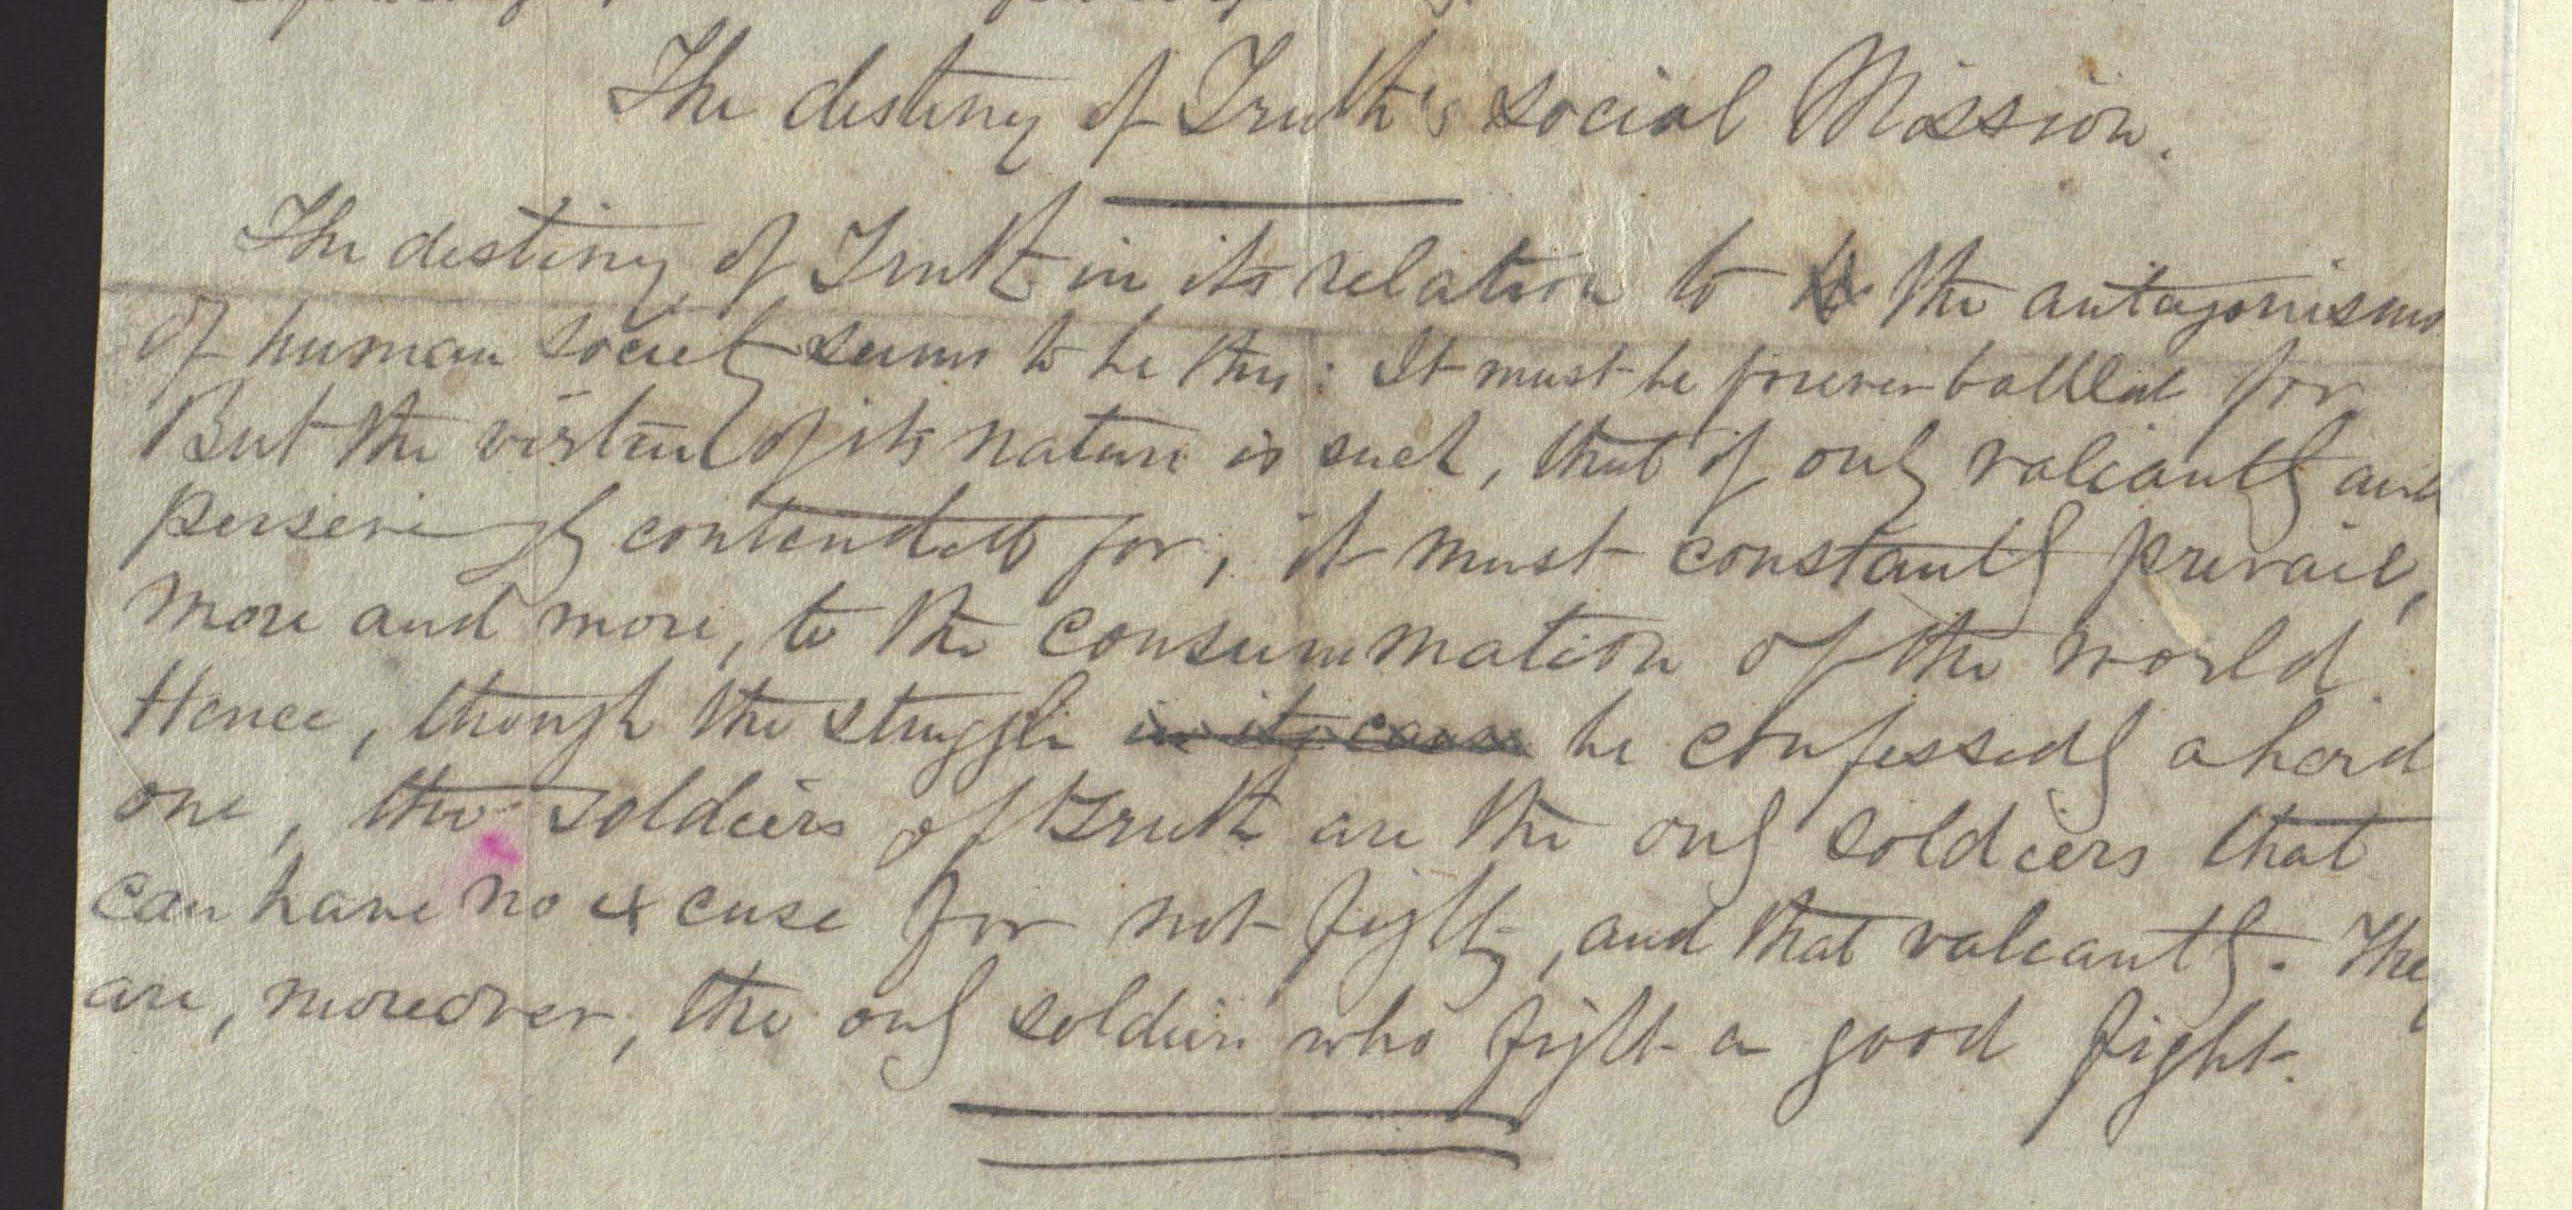 The destiny of Truth's social Mission.
The destiny of Truth in its relation to the antagonisms
of human society seems to be this: It must be forever battled for
But the virtue of its nature is such, that if only valiantly and
perseveringly contended for, it must constantly prevail,
more and more, to the consummation of the world.
Hence, though the struggle in its cause be confessedly a hard
one, the soldiers of truth are the only soldiers that
can have no excuse for not fighting, and that valiantly. They
are, moreover, the only soldiers who fight a good fight.